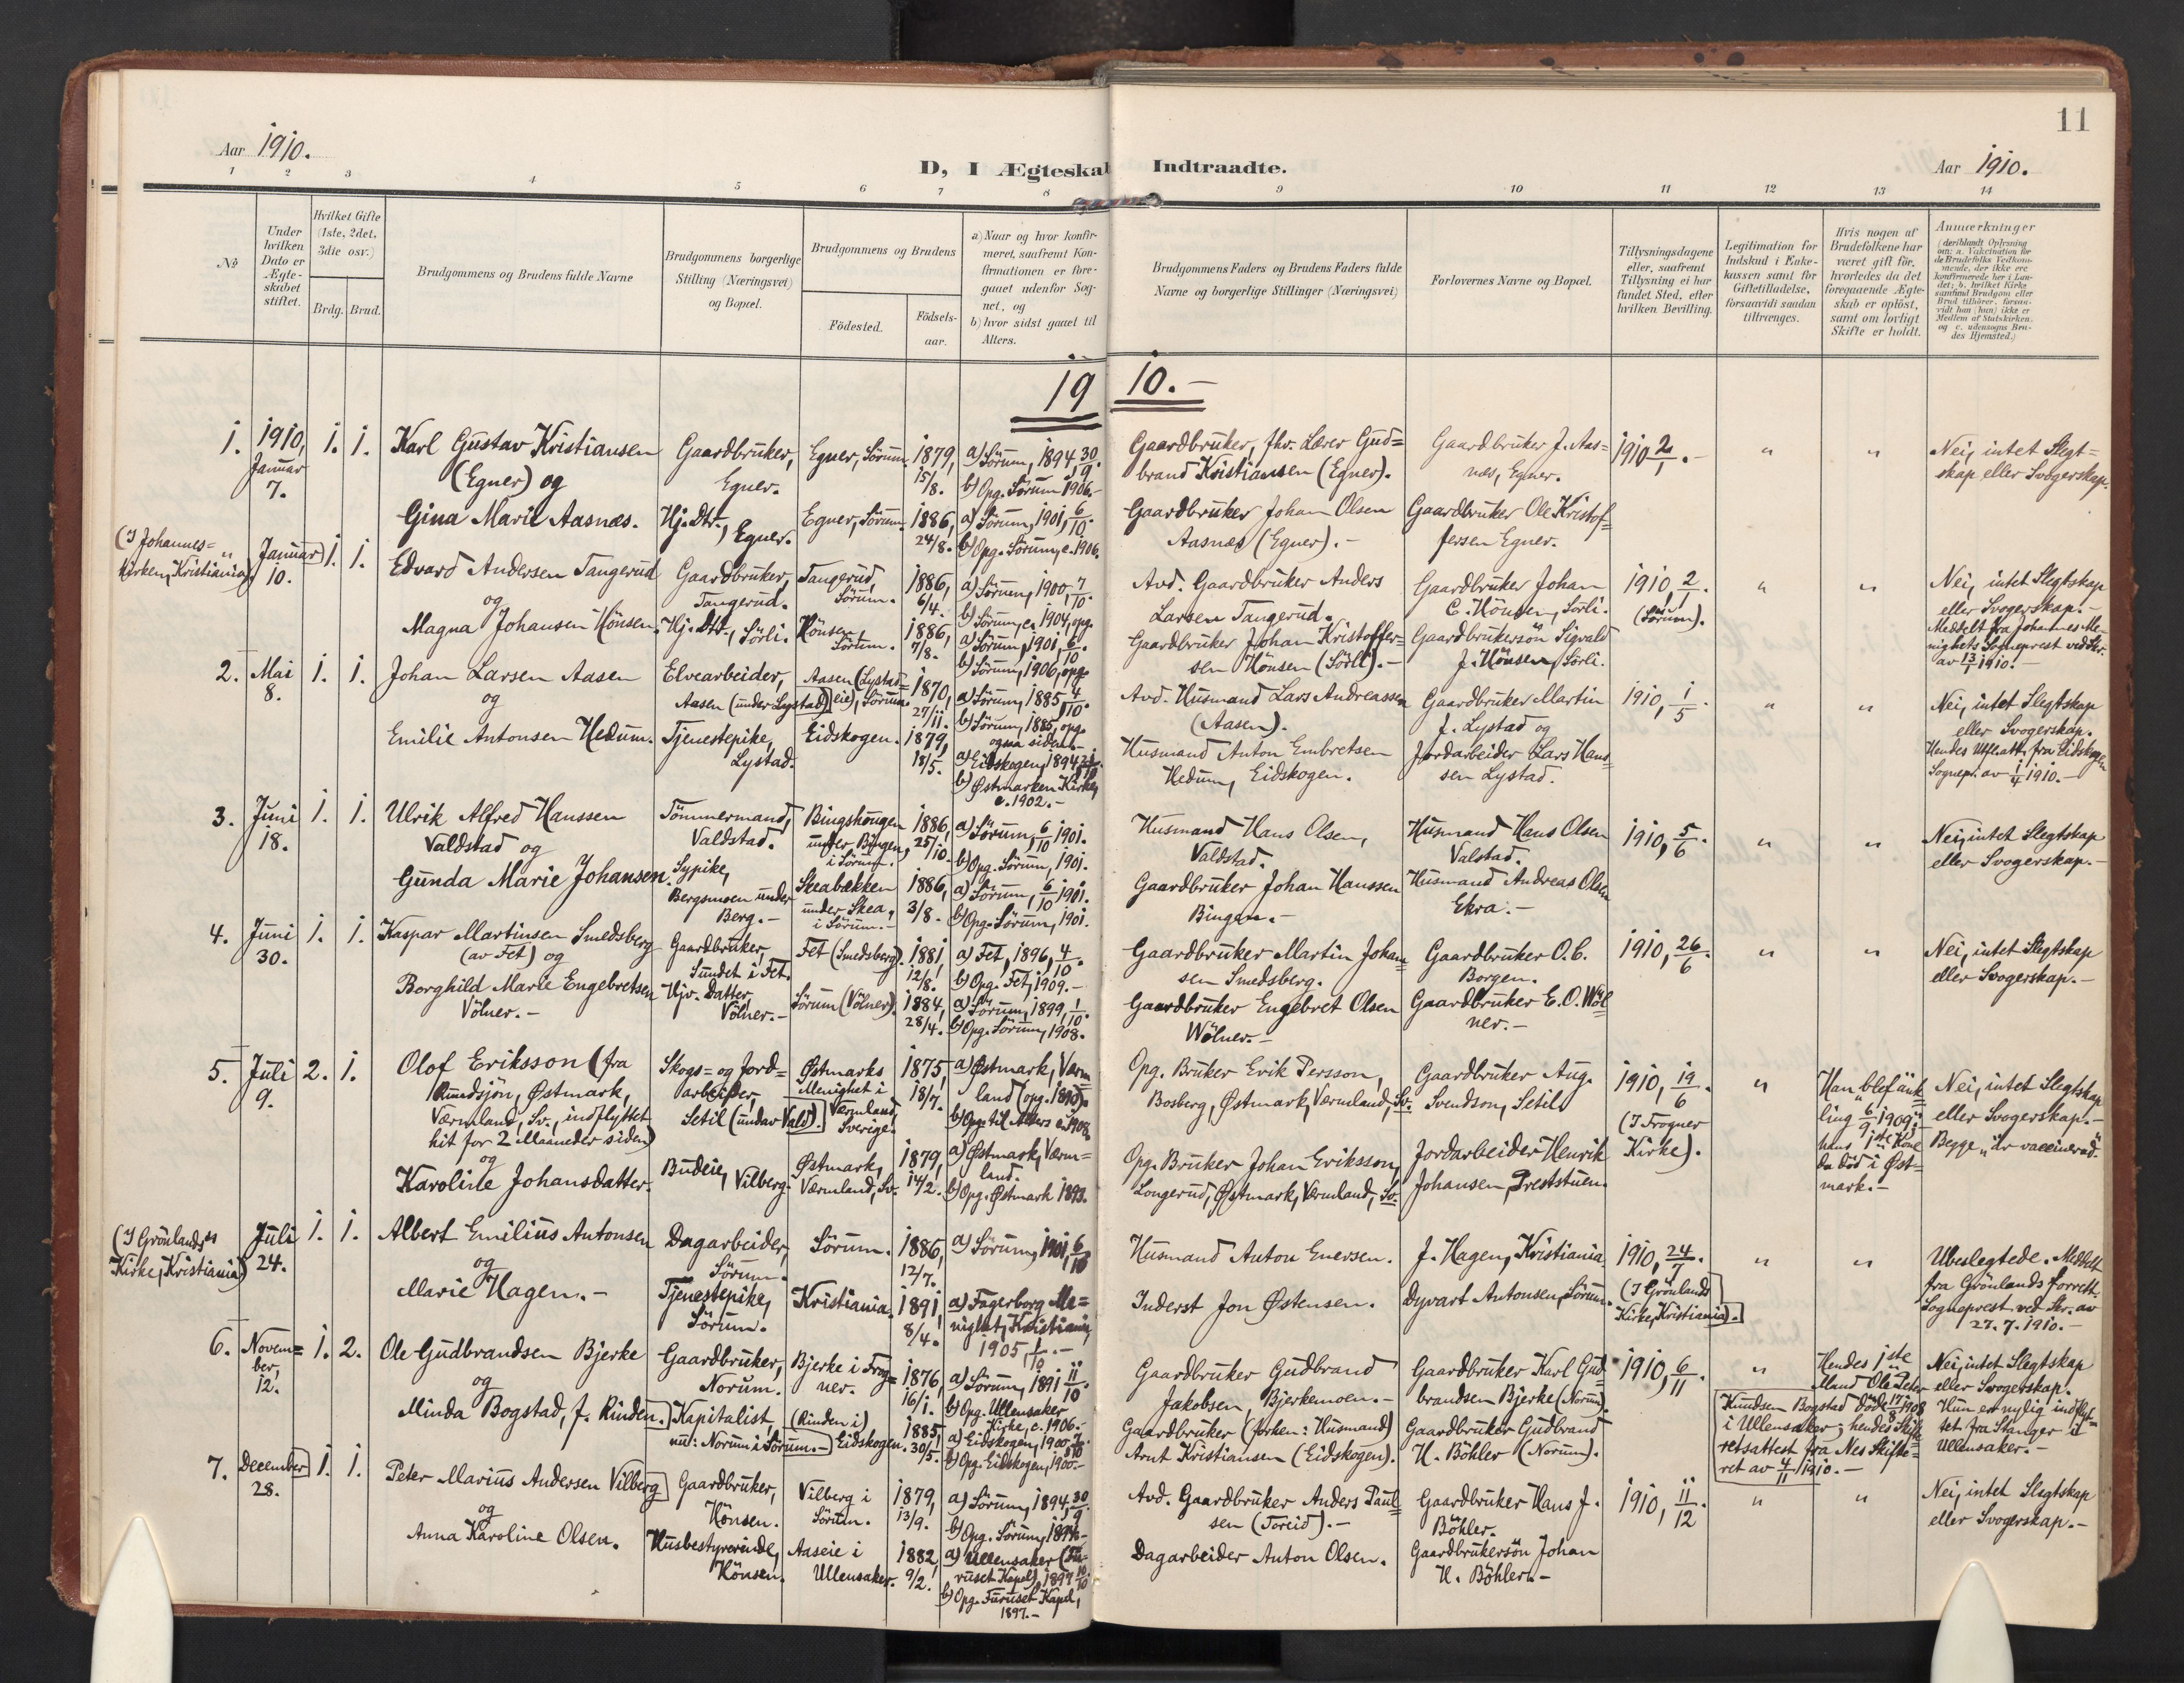 11
Aar 1910.
D, I Ægteskab Indtraadte.
Aar 1910.
1 2 3 4 5 6 7 8 9 10 11 12 13 14
No
Under hvilken Dato er Ægteskabet stiftet.
Hvilket Gifte (1ste, 2det, 3die osv.)
Brdg. Brud.
Brudgommens og Brudens fulde Navne
Brudgommens borgerlige Stilling (Næringsvei) og Bopæl.
Brudgommens og Brudens
Födested.
Födselsaar.
a) Naar og hvor konfirmeret, saafremt Konfirmationen er foregaaet udenfor Sognet, og
b) hvor sidst gaaet til Alters.
Brudgommens Faders og Brudens Faders fulde Navne og borgerlige Stillinger (Næringsvei)
Forlovernes Navne og Bopæl.
Tillysningsdagene eller, saafremt Tillysning ei har fundet Sted, efter hvilken Bevilling.
Legitimation for Indskud i Enkekassen samt for Giftetilladelse, forsaavidt saadan tiltrænges.
Hvis nogen af Brudefolkene har været gift för, hvorledes da det foregaaende Ægteskab er oplöst, samt om lovligt Skifte er holdt.
Anmærkninger (deriblandt Oplysning om: a. Vakcination for de Brudefolks Vedkommende, der ikke ere konfirmerede her i Landet; b. hvilket Kirkesamfund Brudgom eller Brud tilhörer, forsaavidt han (hun) ikke er Medlem af Statskirken, og c. udensogns Brudes Hjemsted.)
1910.-
1. 1910, Januar 7. 1. 1.
Karl Gustav Kristiansen (Egner) og
Gaardbruker, Egner.
Egner, Sörum. 1879, 15/8.
a) Sörum, 1894, 30/9.
b) Opg. Sörum 1906.-
Gaardbruker, fhv. Lærer Gudbrand Kristiansen (Egner).
Gaardbruker J. Aasnæs, Egner.
1910 2/1.-
" "
Nei, intet Slegtskap eller Svogerskap.
Gina Marie Aasnæs.
Hj. Dtr., Egner.
Egner, Sörum. 1886, 24/8.
a) Sörum, 1901, 6/10.
b) Opg. Sörum, c. 1906.
Gaardbruker Johan Olsen Aasnæs (Egner).-
Gaardbruker Ole Kristoffersen Egner.
(I Johanneskirken, Kristiania) " Januar 10. 1. 1.
Edvard Andersen Tangerud og
Gaardbruker, Tangerud.
Tangerud, Sörum. 1886, 6/4.
a) Sörum, 1900, 7/10.
b) Sörum, c. 1904, opg.
Avd. Gaardbruker Anders Larsen Tangerud.
Gaardbruker Johan C. Hönsen, Sörli.
1910, 2/1. (Sörum).
" "
Nei, intet Slegtskap eller Svogerskap.-
Meddelt fra Johannes Menighets Sogneprest ved Skr. av 13/1 1910.-
Magna Johansen Hönsen.
Hj. Dtr., Sörli.
Hönsen, Sörum. 1886, 7/8.
a) Sörum, 1901, 6/10.
b) Sörum, 1906, opg.
Gaardbruker Johan Kristoffersen Hönsen (Sörli).-
Gaardbrukersön Sigvald J. Hönsen, Sörli.
2. Mai 8. 1. 1.
Johan Larsen Aasen og
Elvearbeider, Aasen (under Lystad)
Aasen (Lystadeie), Sörum. 1870, 27/11.
a) Sörum, 1885, 4/10.
b) Sörum, 1885, opg. ogsaa siden.-
Avd. Husmand Lars Andreassen (Aasen).
Gaardbruker Martin J. Lystad og
1910, 1/5.
" "
Nei, intet Slegtskap eller Svogerskap.
Hendes Utflatt. fra Eidskogen Sognepr. av 1/4 1910.-
Emilie Antonsen Hedum.
Tjenestepike, Lystad.
Eidskogen. 1879, 18/5.
a) Eidskogen, 1894,
b) Østmarken Kirke, c. 1902.-
Husmand Anton Embretsen Hedum, Eidskogen.
Jordarbeider Lars Hanssen Lystad.
3. Juni 18. 1. 1.
Ulrik Alfred Hanssen Valdstad og
Tömmermand, Valdstad.
Bingshougen under Bingen, i Sörum. 1886, 25/10.
a) Sörum, 6/10 1901.
b) Opg. Sörum, 1901.
Husmand Hans Olsen, Valdstad.
Husmand Hans Olsen Valstad.
1910, 5/6.
" "
Nei, intet Slegtskap eller Svogerskap.-
Gunda Marie Johansen.
Sypike, Bergsmoen under Berg.-
Skeabækken under Skea, i Sörum.- 1886, 3/8.
a) Sörum, 6/10 1901.
b) Opg. Sörum, 1901.
Gaardbruker Johan Hanssen Bingen.-
Husmand Andreas Olsen Ekra.-
4. Juni 30. 1. 1.
Kaspar Martinsen Smedsberg (av Fet) og
Gaardbruker, Sundet i Fet.
Fet (Smedsberg). 1881, 12/8.
a) Fet, 1896, 4/10.
b) Opg. Fet, 1909.-
Gaardbruker Martin Johansen Smedsberg.
Gaardbruker O. C. Borgen.
1910, 26/6.
" "
Nei, intet Slegtskap eller Svogerskap.-
Borghild Marie Engebretsen Völner.-
Hjv. Datter, Völner.-
Sörum (Völner). 1884, 28/4.
a) Sörum, 1899, 1/10.
b) Opg. Sörum, 1908.
Gaardbruker Engebret Olsen Wölner.-
Gaardbruker E. O. Wölner.-
5. Juli 9. 2. 1.
Olof Eriksson (fra Rundsjön, Østmark, Værmland, Sv., indflyttet hit for 2 Maaneder siden) og
Skogs- og Jordarbeider, Setil (under Vald).
Østmarks Menighet i Værmland, Sverige. 1875, 18/7.
a) Østmark, Værmland (opg. 1890).
b) Opg. til Alters c. 1908.
Opg. Bruker Erik Persson, Bosberg, Østmark, Værmland, Sv.
Gaardbruker Aug. Svendson, Setil
1910, 19/6. (I Frogner Kirke).
"
Han „blef änkling 6/9 1909"; hans 1ste Kone da död i Østmark.-
Nei, intet Slegtskap eller Svogerskap.-
Begge „är vaccinerad".
Karoline Johansdatter.
Budeie, Vilberg.
Østmark, Værmland, Sv. 1879, 14/2.
a) Østmark, Værmland.
b) Opg. Østmark 1893.
Opg. Bruker Johan Eriksson, Longerud, Østmark, Værmland, Sv.
Jordarbeider Henrik Johansen, Preststuen.
(I Grönlands Kirke, Kristiania) " Juli 24. 1. 1.
Albert Emilius Antonsen og
Dagarbeider, Sörum.
Sörum. 1886, 12/7.
a) Sörum, 1901, 6/10
Husmand Anton Enersen.
J. Hagen, Kristiania
1910, 24/7. (I Grönlands Kirke, Kristiania).
" "
Ubeslegtede. Meddelt fra Grönlands forrett. Sogneprest ved Skr. av 27.7.1910.-
Marie Hagen.-
Tjenestepike, Sörum.
Kristiania. 1891, 8/4.
a) Fagerborg Menighet, Kristiania, 1905, 1/10.-
Inderst Jon Østensen.
Dyvart Antonsen, Sörum.
6. November, 12. 1. 2.
Ole Gudbrandsen Bjerke og
Gaardbruker, Norum.
Bjerke i Frogner. 1876, 16/1.
a) Sörum, 1891 11/10.
b) Opg. Ullensaker Kirke, c. 1906.-
Gaardbruker Gudbrand Jakobsen, Bjerkemoen.-
Gaardbruker Karl Gudbrandsen Bjerke (Norum).
1910, 6/11.
"
Hendes 1ste Mand Ole Peter Knudsen Bogstad död 17/8 1908 i Ullensaker; hendes Skifteretsattest fra Nes Skifteret av 4/11 1910.-
Nei, intet Slegtskap eller Svogerskap.
Hun er nylig indflyttet fra Stanger i Ullensaker.-
Minda Bogstad, f. Rinden.
Kapitalist, nu: Norum i Sörum.-
(Rinden i) Eidskogen. 1885, 30/5.
a) Eidskogen, 1900
b) Opg. Eidskogen, 1900.-
Gaardbruker (forhen: Husmand) Arnt Kristiansen (Eidskogen).
Gaardbruker Gudbrand H. Böhler (Norum).
7. December 28. 1. 1.
Peter Marius Andersen Vilberg og
Gaardbruker, Hönsen.
Vilberg i Sörum. 1879, 13/9.
a) Sörum, 1894, 30/9.
b) Opg. Sörum, 1894.-
Avd. Gaardbruker Anders Paulsen (Toreid).-
Gaardbruker Hans J. Böhler.
1910, 11/12
" "
Nei, intet Slegtskap eller Svogerskap.-
Anna Karoline Olsen.
Husbestyrerinde, Hönsen.
Aaseie i Ullensaker. 1882, 9/2.
a) Ullensaker (Furuset Kapel), 1897 10/10
b) Opg. Furuset Kapel, 1897.-
Dagarbeider Anton Olsen.
Gaardbrukersön Johan H. Böhler.-